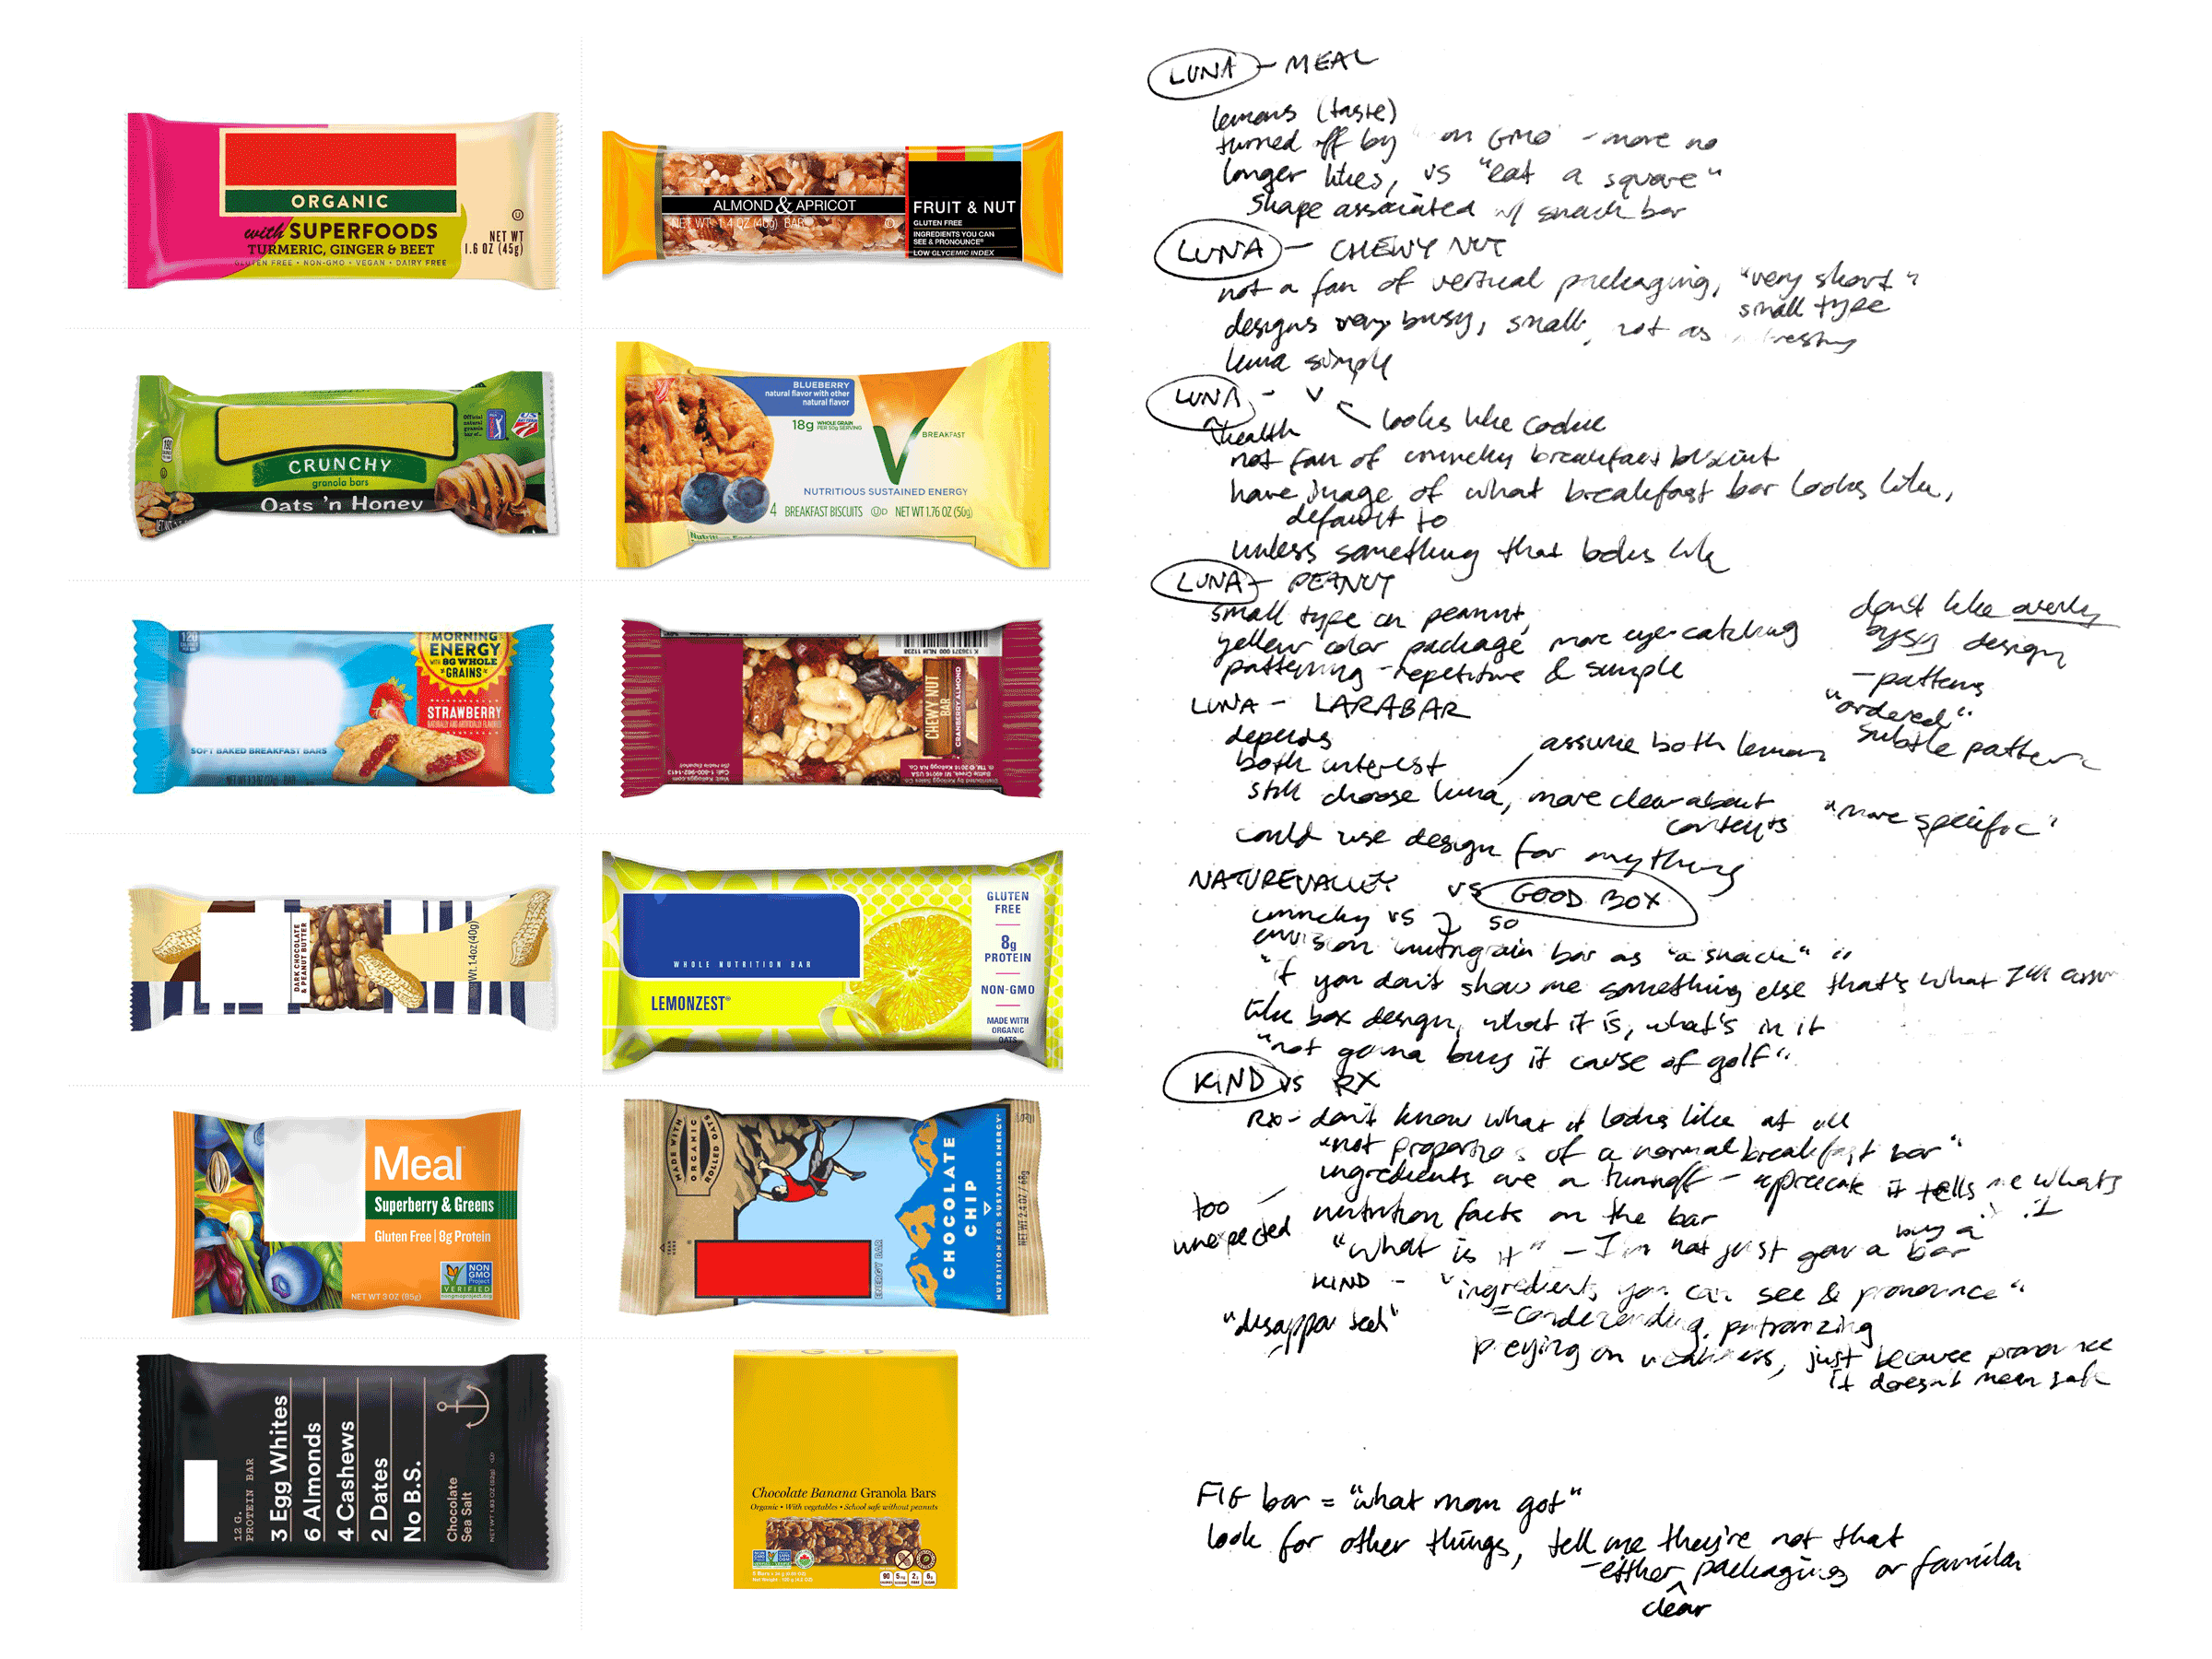 ORGANIC
with SUPERFOODS
TURMERIC, GINGER & BEET
GLUTEN FREE • NON-GMO • VEGAN • DAIRY FREE
NET WT
1.6 OZ (45g)
ALMOND & APRICOT
NET WT. 1.4 OZ (40g) BAR
FRUIT & NUT
GLUTEN FREE
INGREDIENTS YOU CAN
SEE & PRONOUNCE®
LOW GLYCEMIC INDEX
CRUNCHY
granola bars
Oats 'n Honey
Official
natural
granola
bar of...
190
US
BLUEBERRY
natural flavor with other
natural flavor
18g WHOLE GRAIN
PER 50g SERVING
V
BREAKFAST
NUTRITIOUS SUSTAINED ENERGY
4 BREAKFAST BISCUITS UD NET WT 1.76 OZ (50g)
120
MORNING
ENERGY
WITH 8G WHOLE
GRAINS
STRAWBERRY
NATURALLY AND ARTIFICIALLY FLAVORED
SOFT BAKED BREAKFAST BARS
NET WT 1.3 OZ (37g) BAR
CHEWY NUT
BAR
CRANBERRY ALMOND
DARK CHOCOLATE
& PEANUT BUTTER
Wt. 1.4oz (40g)
WHOLE NUTRITION BAR
LEMONZEST®
GLUTEN
FREE
8g
PROTEIN
NON-GMO
MADE WITH
ORGANIC
OATS
Meal
Superberry & Greens
Gluten Free | 8g Protein
NON
GMO
Project
VERIFIED
nongmoproject.org
NET WT 3 OZ (85g)
MADE WITH
ORGANIC
ROLLED OATS
ENERGY BAR
CHOCOLATE
CHIP
NUTRITION FOR SUSTAINED ENERGY®
NET WT 2.4 OZ / 68g
12 G.
PROTEIN BAR
3 Egg Whites
6 Almonds
4 Cashews
2 Dates
No B.S.
Chocolate
Sea Salt
NET WT 1.83 OZ (52g)
Chocolate Banana Granola Bars
Organic • With vegetables • School safe without peanuts
LUNA - MEAL
lemons (taste)
turned off by on GMO - more no
longer likes, vs "eat a square"
shape associated w/ snack bar
LUNA - CHEWY NUT
not a fan of vertical packaging, "very short"
small type
designs very busy, small, not as
luna simple
LUNA - V
looks like cookie
health
not fan of crunchy breakfast biscuit
have image of what breakfast bar looks like,
default to
unless something that looks like
LUNA - PEANUT
small type on peanut,
yellow color package more eye-catching
patterning - repetitive & simple
don't like overly
busy design
- patterns
"ordered"
subtle pattern
LUNA - LARABAR
depends
both interest
assume both lemon
still choose luna, more clear about
contents
"more specific"
could use design for anything
NATUREVALLEY vs GOOD BOX
crunchy vs so
envision nutrigrain bar as "a snack"
"if you don't show me something else that's what I'll assum
like box design, what it is, what's in it
"not gonna buy it cause of golf"
KIND vs RX
RX - don't know what it looks like at all
"not proportions of a normal breakfast bar"
ingredients are a turnoff - appreciate it tells me whats
too
unexpected
nutrition facts on the bar
"What is it" - I'm not just gonna buy a bar
KIND - "ingredients you can see & pronounce"
= condescending, patronizing
preying on weakness, just because pronounce
it doesn't mean safe
FIG bar = "what mom got"
look for other things, tell me they're not that
- either packaging or familiar
clear